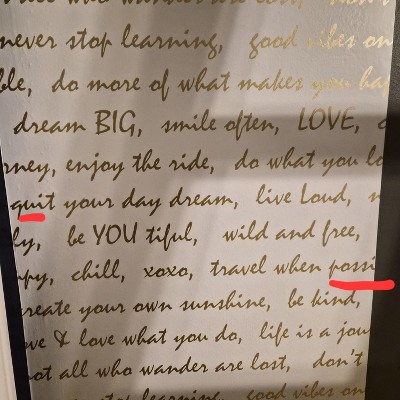 all who wander are lost, don't
never stop learning, good vibes on
ble, do more of what makes you hap
dream BIG, smile often, LOVE,
rney, enjoy the ride, do what you lo
quit your day dream, live Loud, n
ly, be YOU tiful, wild and free,
ppy, chill, xoxo, travel when possi
create your own sunshine, be kind,
ve & love what you do, life is a jou
not all who wander are lost, don't
stop learning, good vibes on